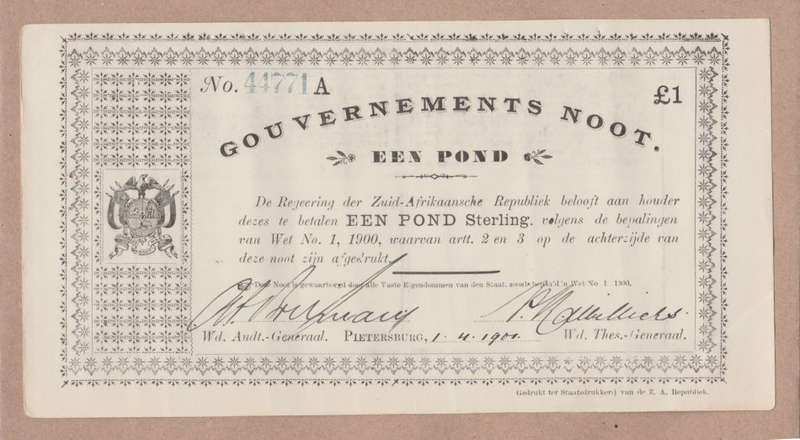 No. 44771 A
£1
GOUVERNEMENTS NOOT.
EEN POND
De Regeering der Zuid-Afrikaansche Republiek belooft aan houder
dezes te betalen EEN POND Sterling, volgens de bepalingen
van Wet No. 1, 1900, waarvan artt. 2 en 3 op de achterzijde van
deze noot zijn afgedrukt.
Deze Noot is gewaarborgd door alle Vaste Eigendommen van den Staat, zooals bepaald in Wet No 1 1900.
Wd. Audt.-Generaal. PIETERSBURG, 1. 4. 1901 Wd. Thes.-Generaal.
Gedrukt ter Staatsdrukkerij van de Z. A. Republiek.